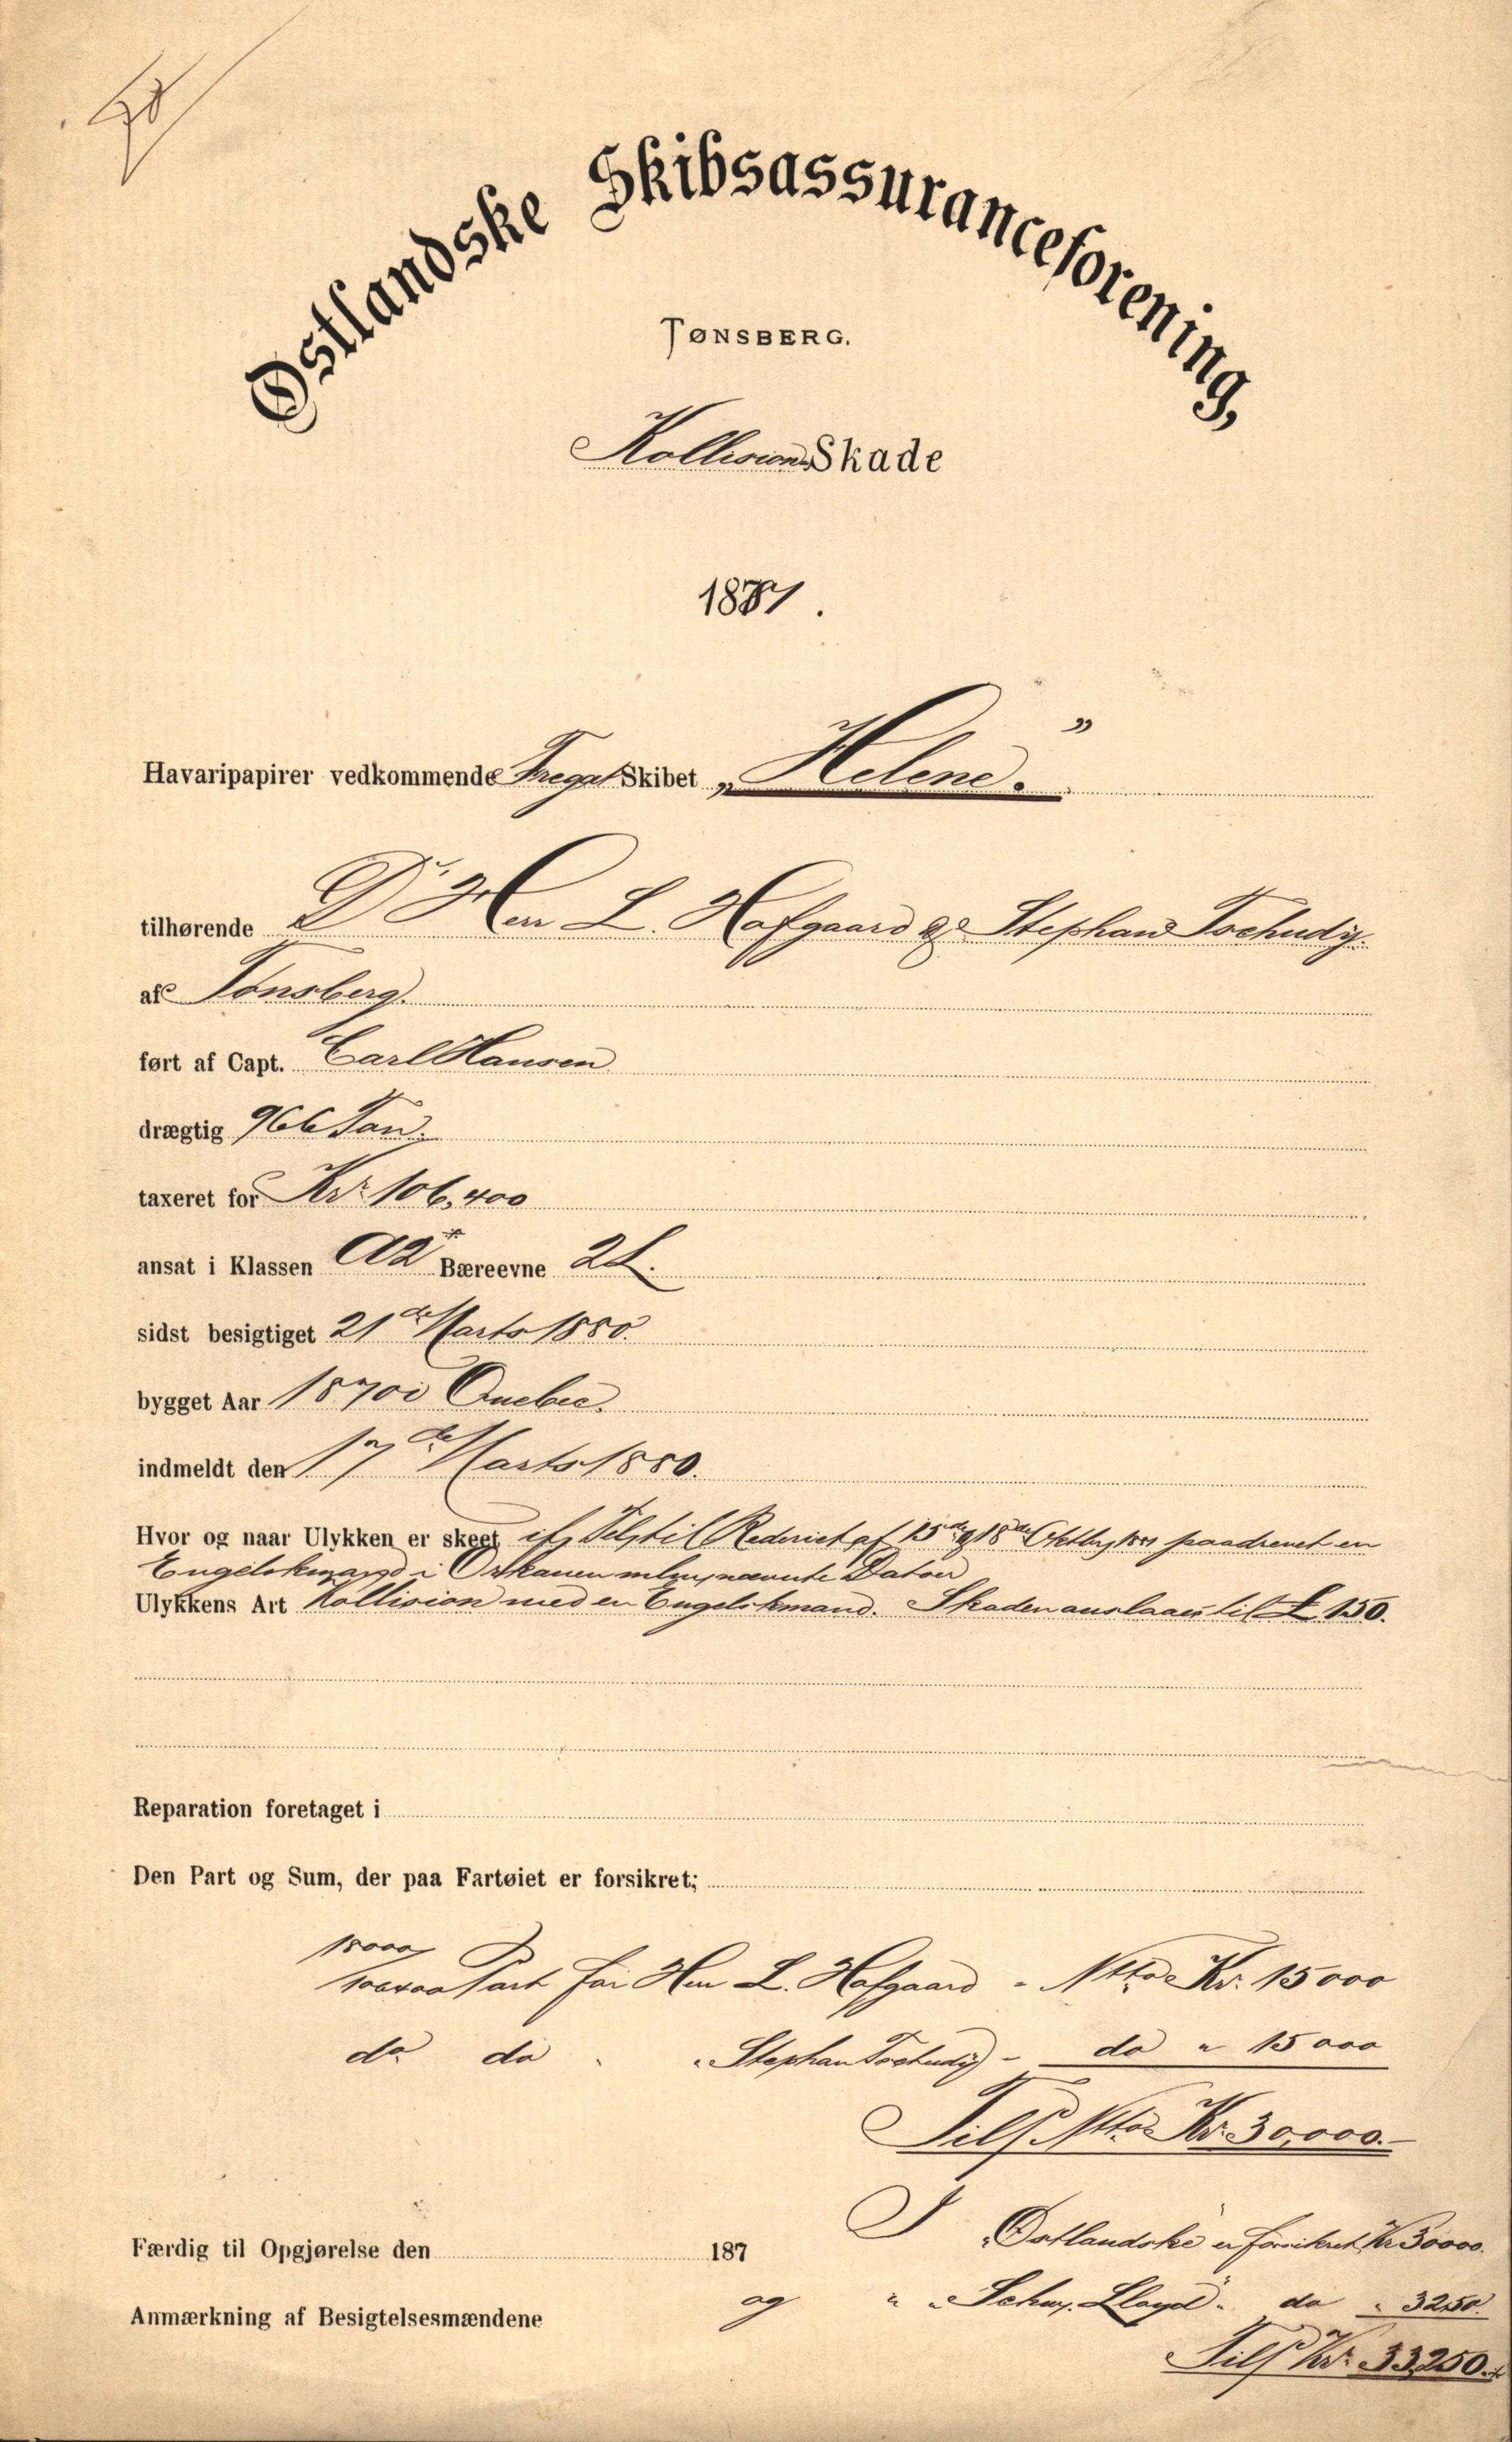 Østlandske Skibsassuranceforening,
TØNSBERG.
Kollisions Skade
1881.
Havaripapirer vedkommende Fregat Skibet „Helene."
tilhørende D'Herr L. Hofgaard & Stephan Tschudy.
af Tønsberg.
ført af Capt. Carl Hansen
drægtig 966 Ton.
taxeret for Kr. 106,400
ansat i Klassen A2* Bæreevne 2L.
sidst besigtiget 21de Marts 1880.
bygget Aar 1870 i Quebec.
indmeldt den 17de Marts 1880.
Hvor og naar Ulykken er skeet if. Tel. til Rederiet af 15de & 18de Oktbr. 1881 paadrevet en
Engelskmand i Orkanen nævnte Datoer
Ulykkens Art Kollision med en Engelskmand. Skaden anslaaes til £ 150.
Reparation foretaget i
Den Part og Sum, der paa Fartøiet er forsikret;
15000/
106400 Part for Herr L. Hofgaard - Ntto Kr. 15000
do do " " Stephan Tschudy - do " 15000
Tils. Ntto Kr. 30,000.-
I „Østlandske" er forsikret Kr 30000.
Færdig til Opgjørelse den 187
og " „Lloyd" do " 3250.
Anmærkning af Besigtelsesmændene
Tils Kr. 33,250.